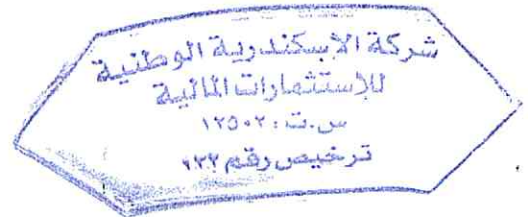 شركة الإسكندرية الوطنية
للإستثمارات المالية
س.ت: ١٢٥٠٢
ترخيص رقم ١٣٢